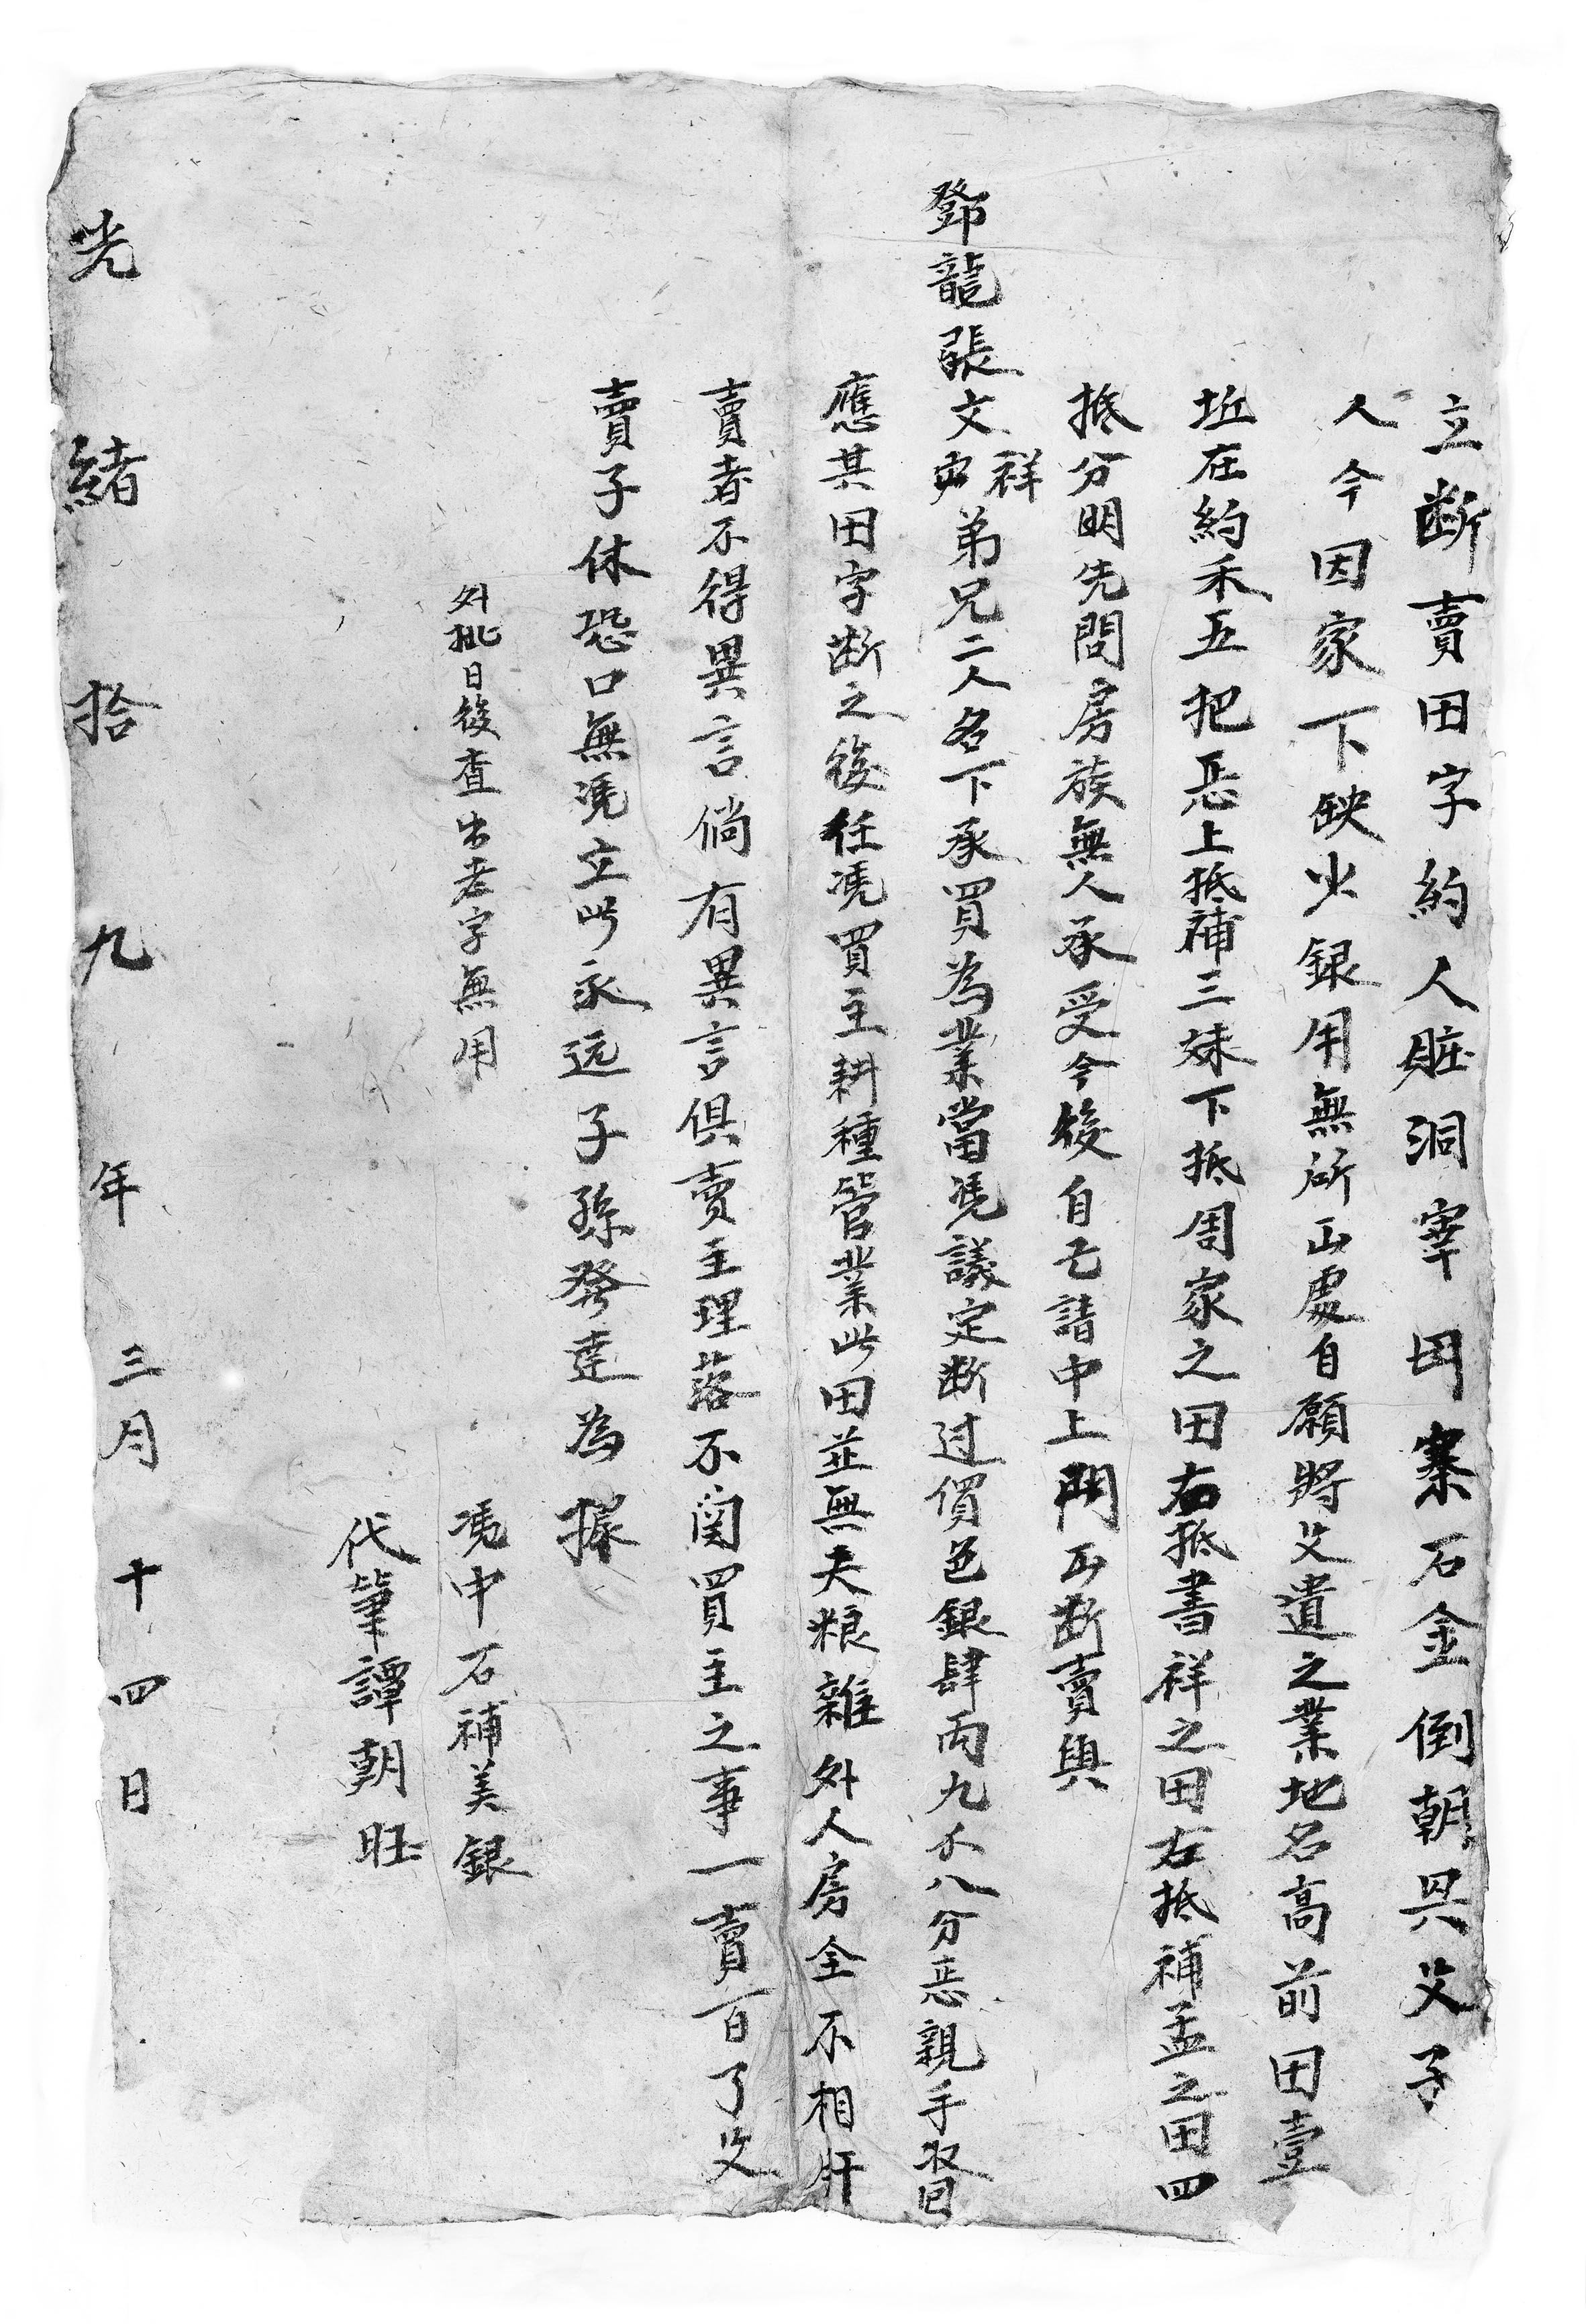 立斷賣田字約人賍洞寨田寨石金倒朝具父子
人今因家下缺少銀用無所出處自願將父遺之業地名高前田壹
坵在約禾五把惡上抵補三妹下抵周家之田右抵書祥之田左抵補孟之田四
抵分明先問房族無人承受今後自己請中上門出斷賣與
鄧龍張文祥弟兄二人名下承買為業當凴議定斷过價色銀肆兩九不八分惡親手收回
應其田字斷之後任凴買主耕種管業此田並無夫粮雜外人房全不相肝
賣者不得異言倘有異言俱賣主理落不関買主之事一賣百了父
賣子休恐口無凴立此永远子孫發達為據
外批日後查出老字無用
凴中石補美銀
代筆譚朝旺
光緒拾九年三月十四日